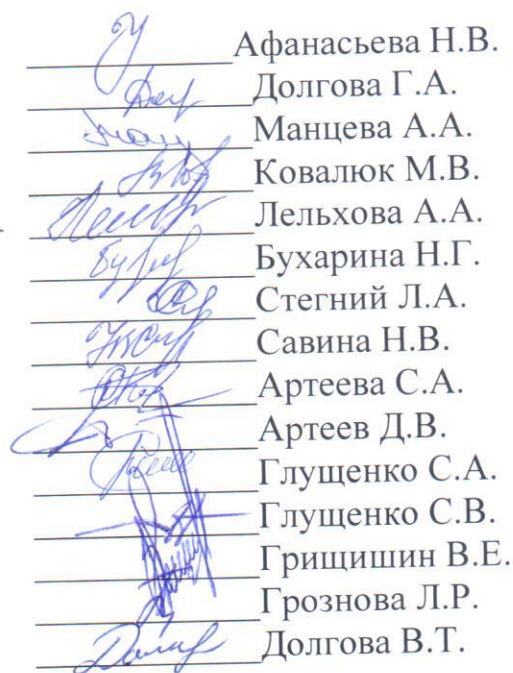 Афанасьева Н.В.
Долгова Г.А.
Манцева А.А.
Ковалюк М.В.
Лельхова А.А.
Бухарина Н.Г.
Стегний Л.А.
Савина Н.В.
Артеева С.А.
Артеев Д.В.
Глущенко С.А.
Глущенко С.В.
Грищишин В.Е.
Грознова Л.Р.
Долгова В.Т.